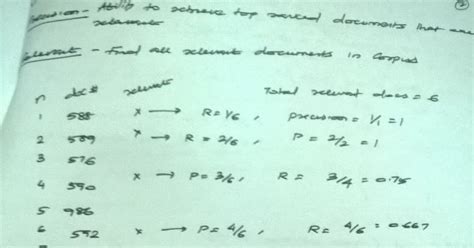 Precision - Ability to retrieve top ranked documents that are
relevant
Relevant - Find all relevant documents in Corpus
n doc # relevant Total relevant docs = 6
1 588 x → R = 1/6 , precision = 1/1 = 1
2 589 x → R = 2/6 , P = 2/2 = 1
3 576
4 590 x → P = 3/6 , R = 3/4 = 0.75
5 986
6 592 x → P = 4/6 , R = 4/6 = 0.667